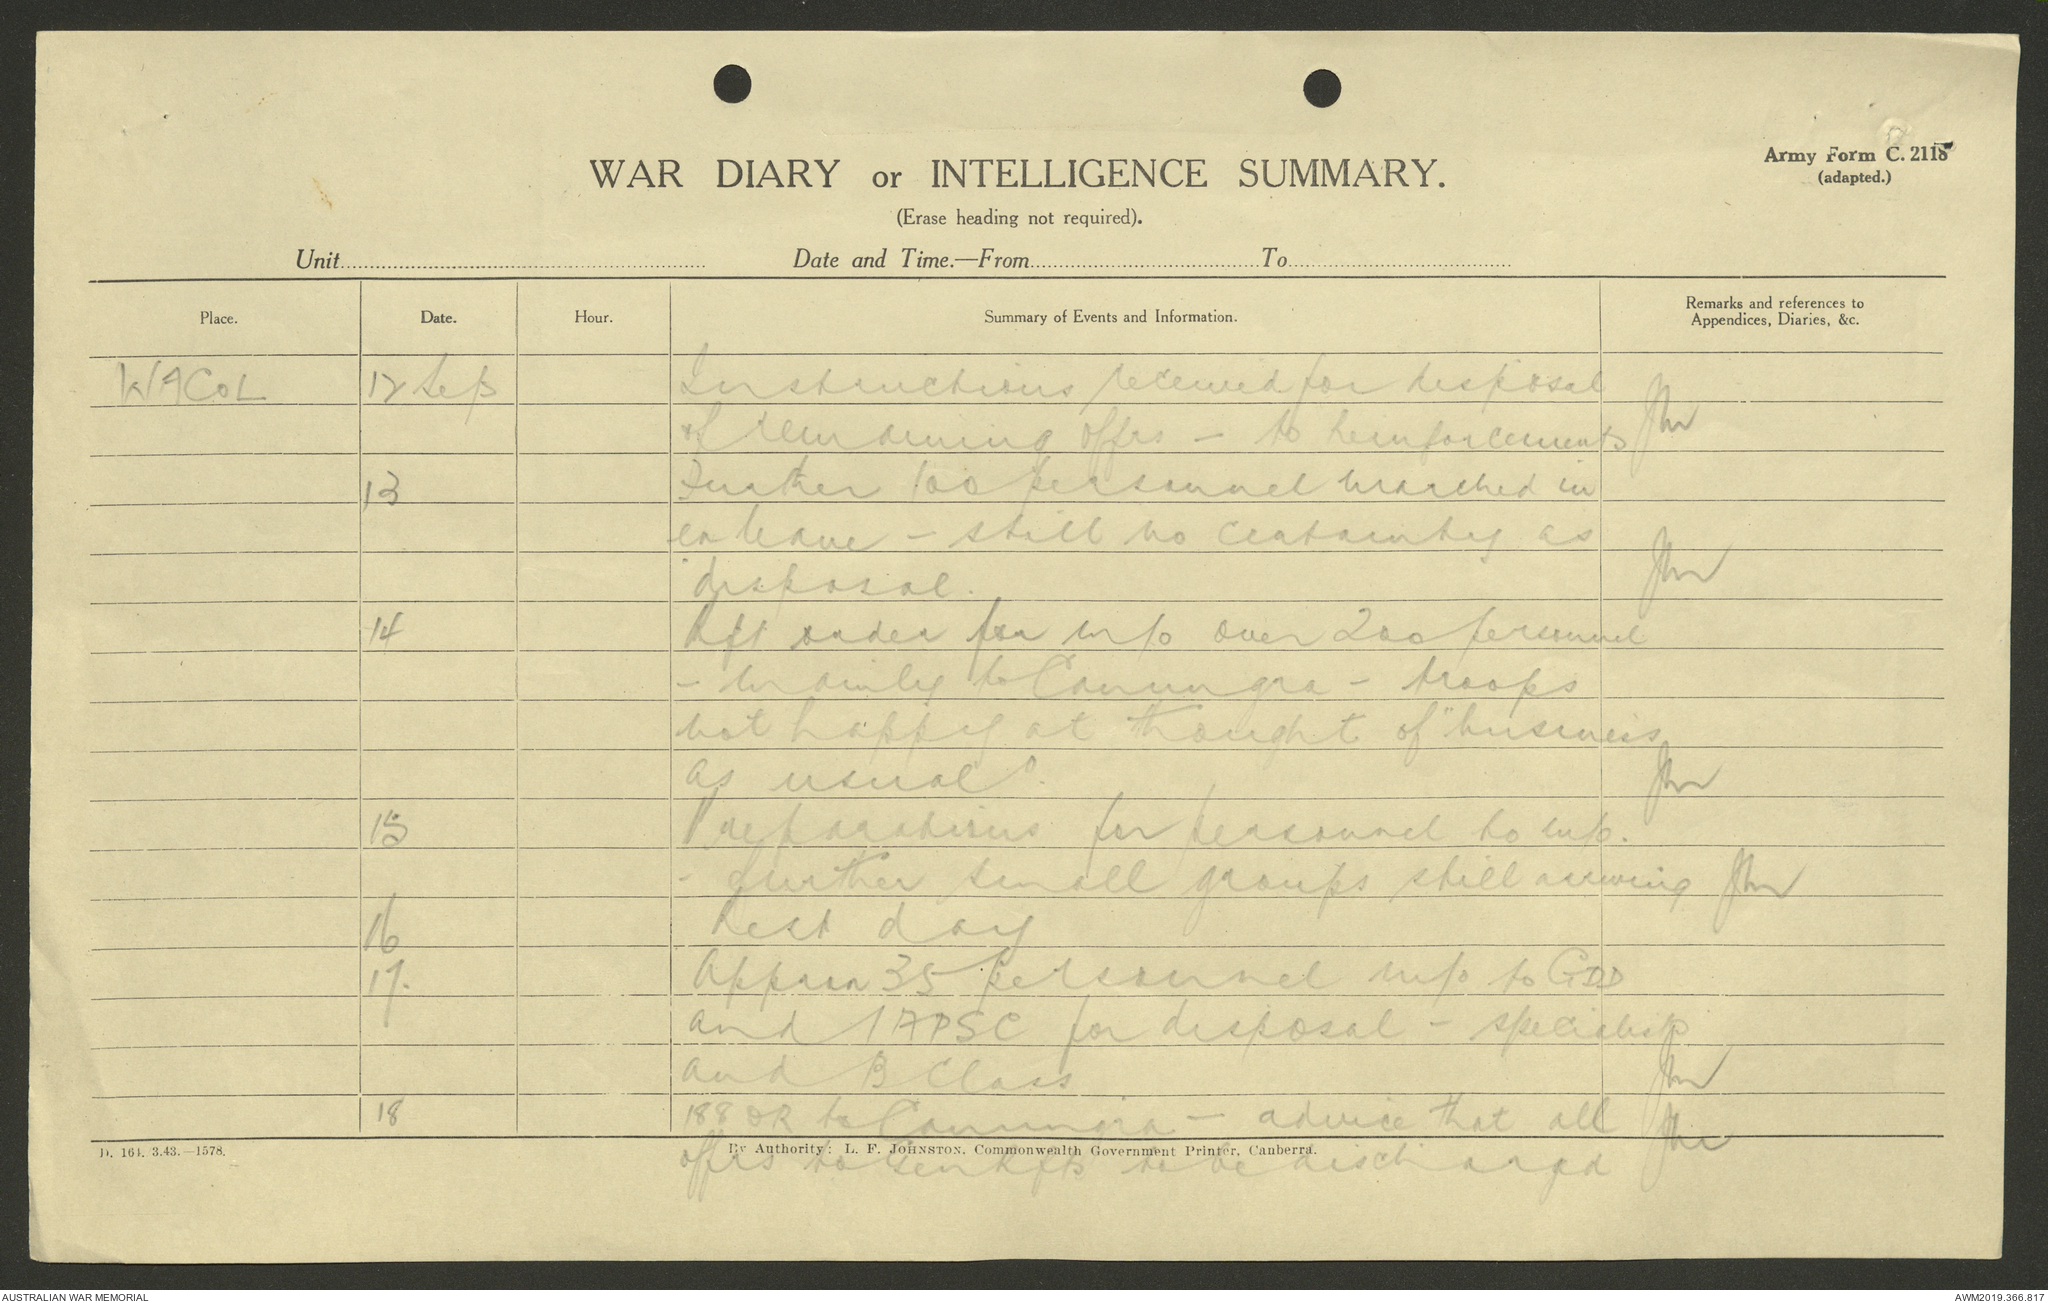 Army Form C. 2118
(adapted.)
WAR DIARY or INTELLIGENCE SUMMARY.
(Erase heading not required).
Unit
Date and Time.—From To
Place. Date. Hour. Summary of Events and Information. Remarks and references to Appendices, Diaries, &c.
WACOL 12 Sep Instructions received for disposal
of remaining offrs - to reinforcements
13 Further 100 personnel marched in
ex leave - still no certainty as
disposal.
14 Rft order for m/o over 200 personnel
- mainly to Canungra - troops
not happy at thought of "business
as usual".
15 Preparations for personnel to m/o.
- further small groups still arriving
16 Rest day
17. Approx 35 personnel m/o to GDD
and 1 APSC for disposal - specialists
and B Class
18 188 OR to Canungra - advice that all
offrs to Gen Rfts to be discharged
D. 164. 3.43.—1578.
By Authority: L. F. JOHNSTON, Commonwealth Government Printer, Canberra.
AUSTRALIAN WAR MEMORIAL
AWM2019.366.817